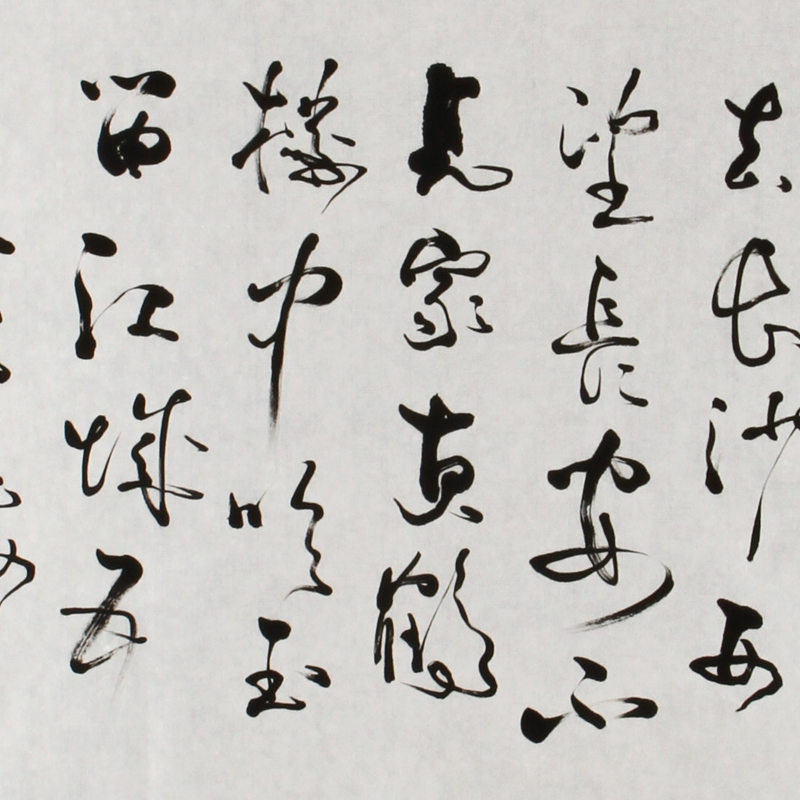 去长沙西
望長安不
見家黄鶴
樓中吹玉
笛江城五